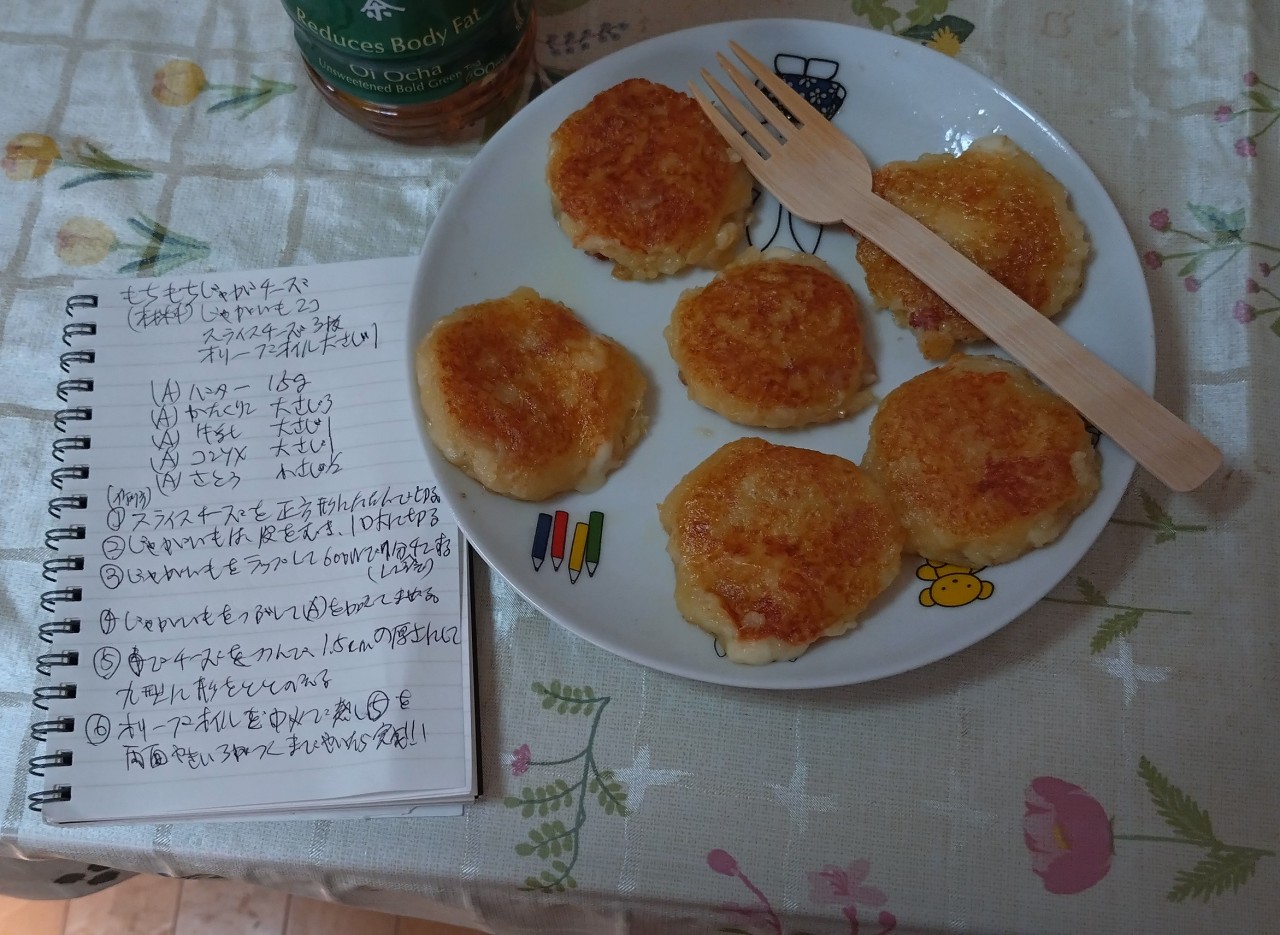 茶
Reduces Body Fat
Oi Ocha
Unsweetened Bold Green Tea
もちもちじゃがチーズ
(材料) じゃがいも2コ
スライスチーズ 3枚
オリーブオイル大さじ1
(A) バター 15g
(A) かたくりこ 大さじ3
(A) 牛乳 大さじ1
(A) コンソメ 大さじ1
(A) さとう 小さじ1/2
① スライスチーズを正方形にたたんで切る
② じゃがいもは、皮をむき、1口大に切る
③ じゃがいもをラップして600Wで7分チンする
④ じゃがいもをつぶして(A)を加えてまぜる
⑤ でチーズを包んで、1.5cmの厚さにして
丸型に形をととのえる
⑥ オリーブオイルを中火で熱し⑤を
両面やきいろがつくまでやいたら完成!!